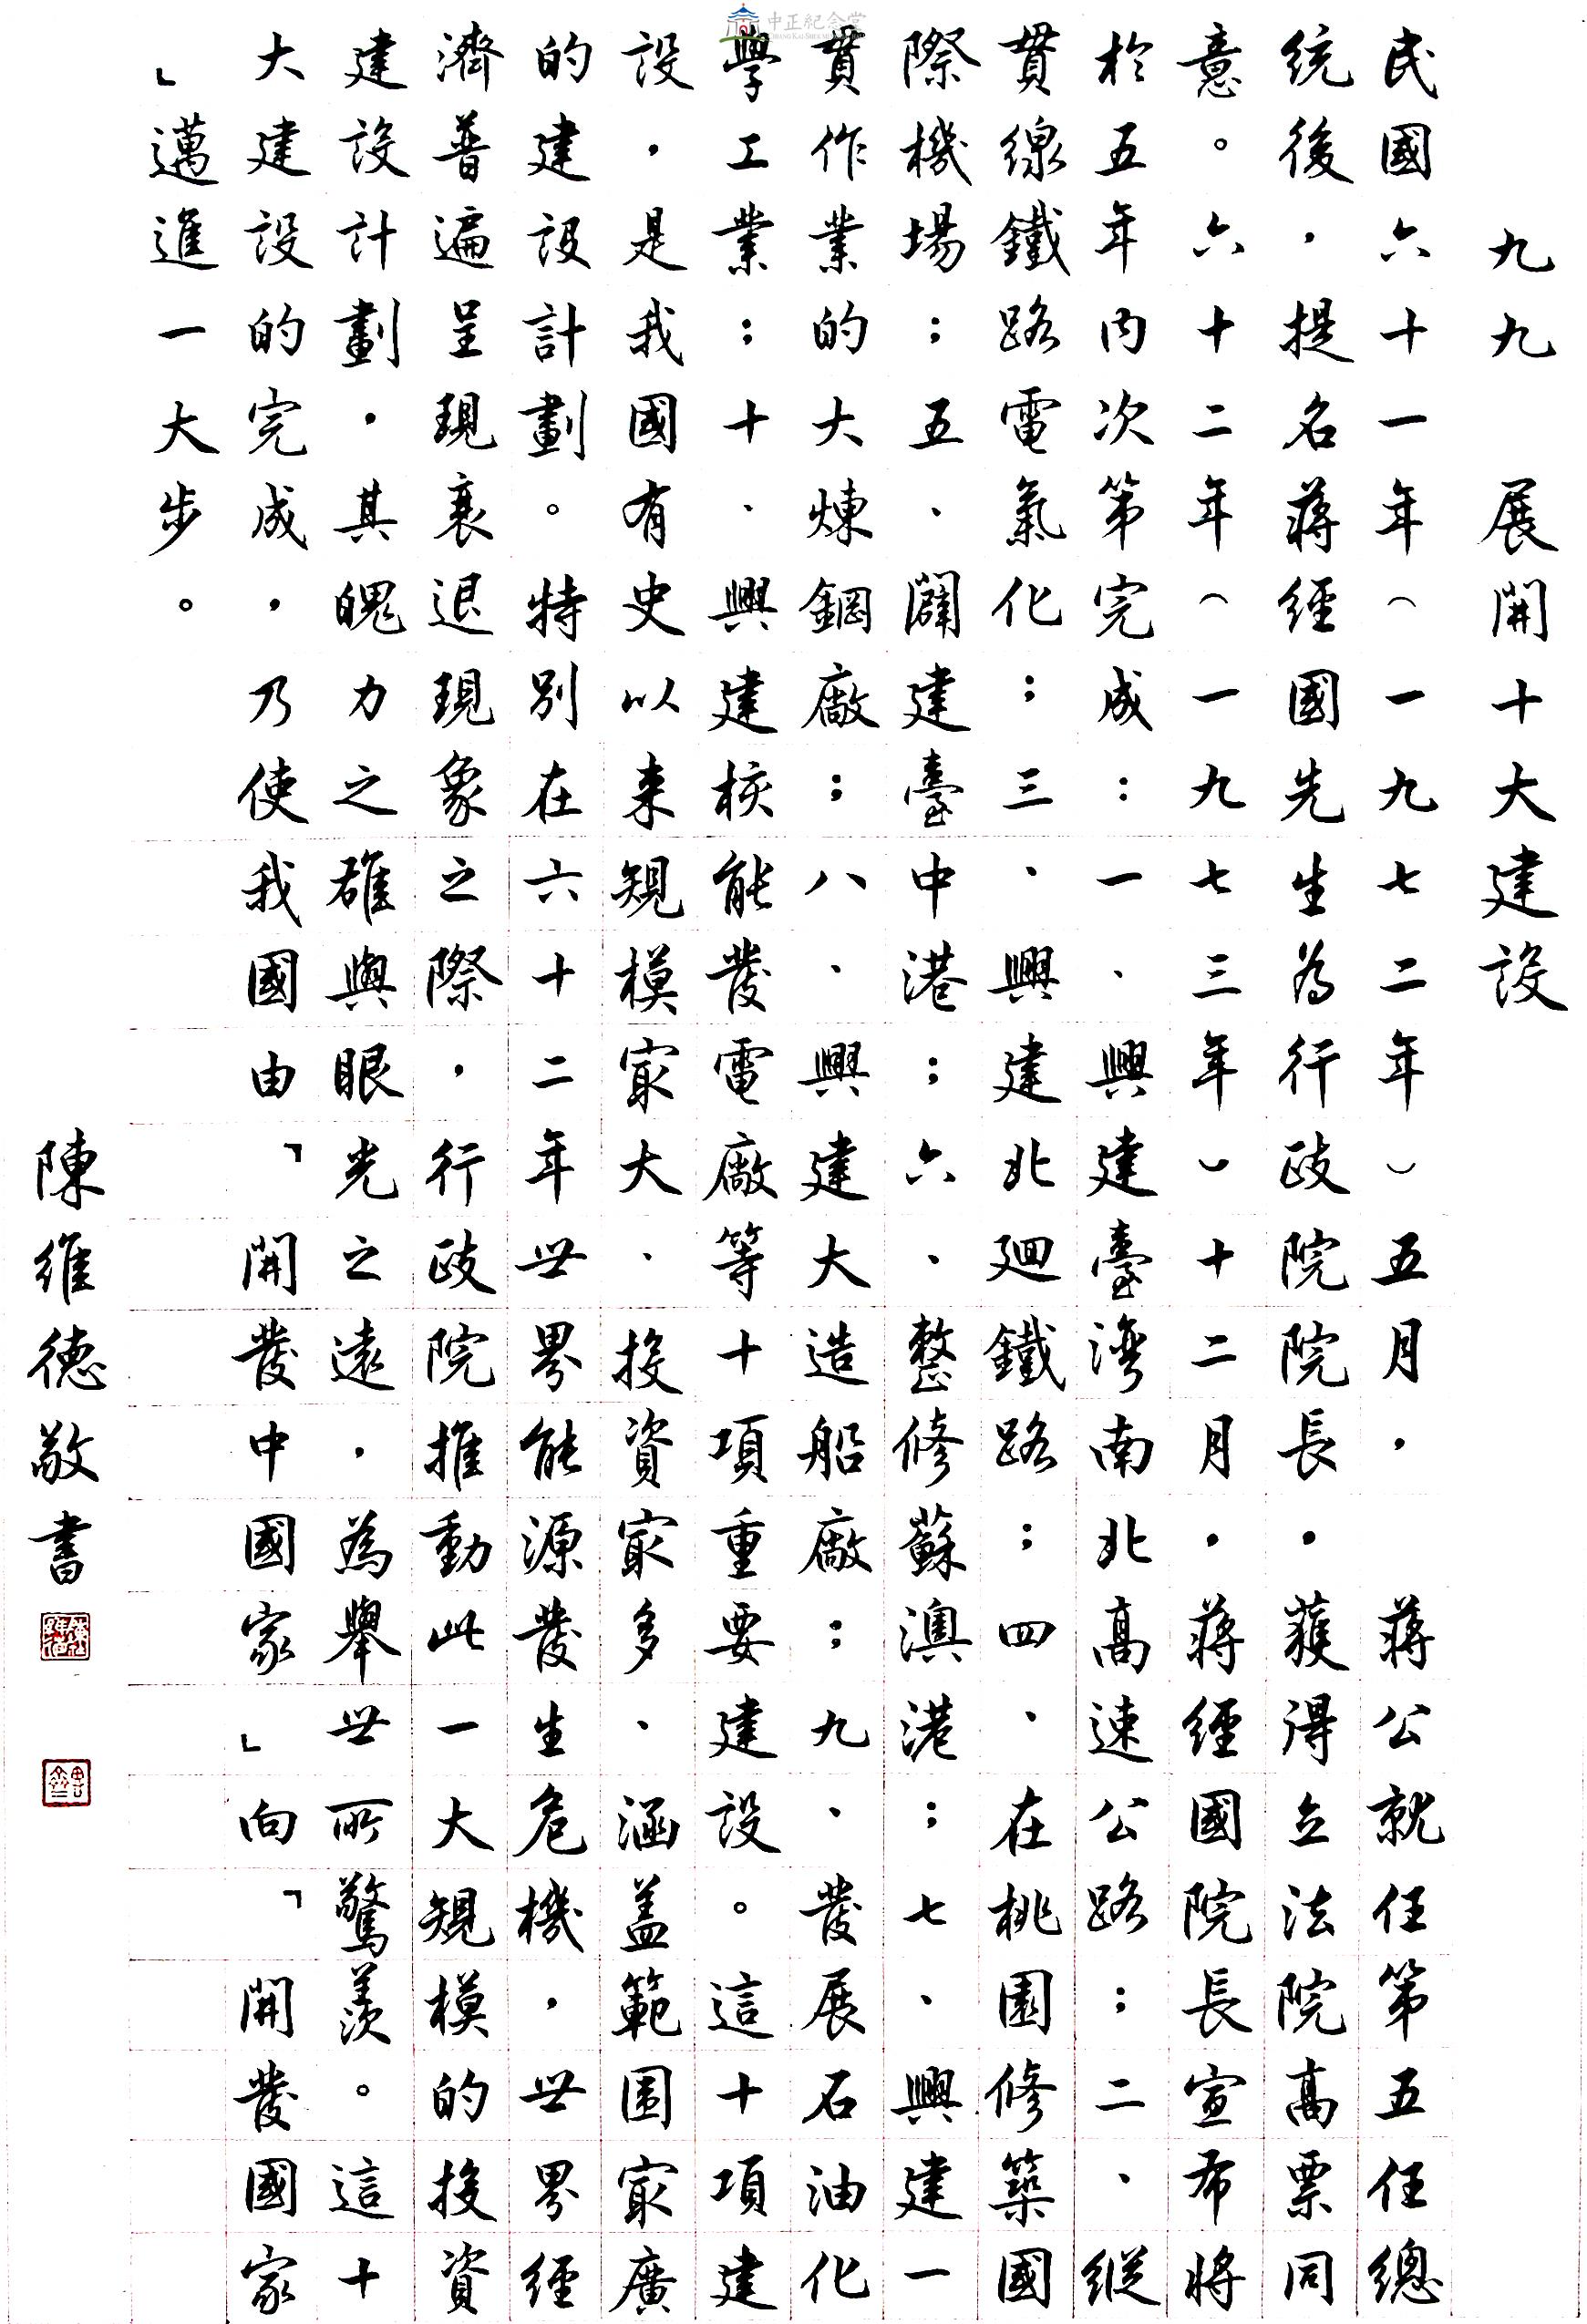 中正紀念堂
九九 展開十大建設
民國六十一年(一九七二年)五月，　蔣公就任第五任總
統後，提名蔣經國先生為行政院院長，獲得立法院高票同
意。六十二年(一九七三年)十二月，蔣經國院長宣布將
於五年內次第完成：一、興建臺灣南北高速公路；二、縱
貫線鐵路電氣化；三、興建北廻鐵路；四、在桃園修築國
際機場；五、闢建臺中港；六、整修蘇澳港；七、興建一
貫作業的大煉鋼廠；八、興建大造船廠；九、發展石油化
學工業；十、興建核能發電廠等十項重要建設。這十項建
設，是我國有史以來規模冣大、投資冣多、涵盖範圍冣廣
的建設計劃。特別在六十二年世界能源發生危機，世界經
濟普遍呈現衰退現象之際，行政院推動此一大規模的投資
建設計劃，其魄力之雄與眼光之遠，為舉世所驚羨。這十
大建設的完成，乃使我國由「開發中國家」向「開發國家
」邁進一大步。
陳維德敬書